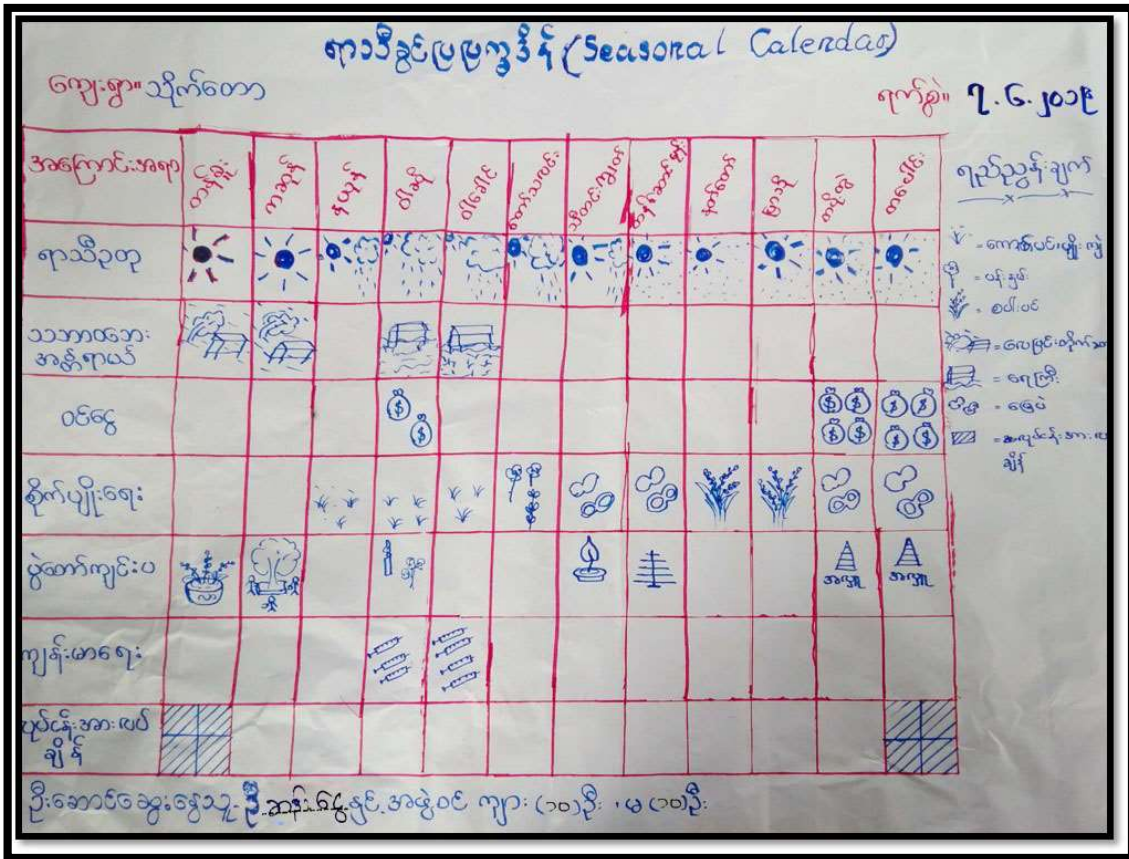 ရာသီခွင်ပြမြက္ခဒိန် (Seasonal Calendar)
ကျေးရွာ။ သိုက်တော
ရက်စွဲ။ ၇.၆.၂၀၁၉
အကြောင်းအရာ တန်ခူး ကဆုန် နယုန် ဝါဆို ဝါခေါင် တော်သလင်း သီတင်းကျွတ် တန်ဆောင်မုန်း နတ်တော် ပြာသို တပို့တွဲ တပေါင်း
ရာသီဥတု
သဘာဝဘေး
အန္တရာယ်
ဝင်ငွေ
$ $ $ $ $ $ $ $ $ $
စိုက်ပျိုးရေး
ပွဲတော်ကျင်းပ
အလှူ အလှူ
ကျန်းမာရေး
လုပ်ငန်းအားလပ်
ချိန်
ရည်ညွှန်းချက်
= ပန်းနှမ်း
= စပါးပင်
= လေပြင်းတိုက်
= ရေကြီး
= မြေပဲ
= အလုပ်ငန်းအားလပ်
ချိန်
ဦးဆောင်ဆွေးနွေးသူ- ဦး နှင့် အဖွဲ့ဝင် ကျား (၁၀)ဦး ၊ မ (၁၀)ဦး